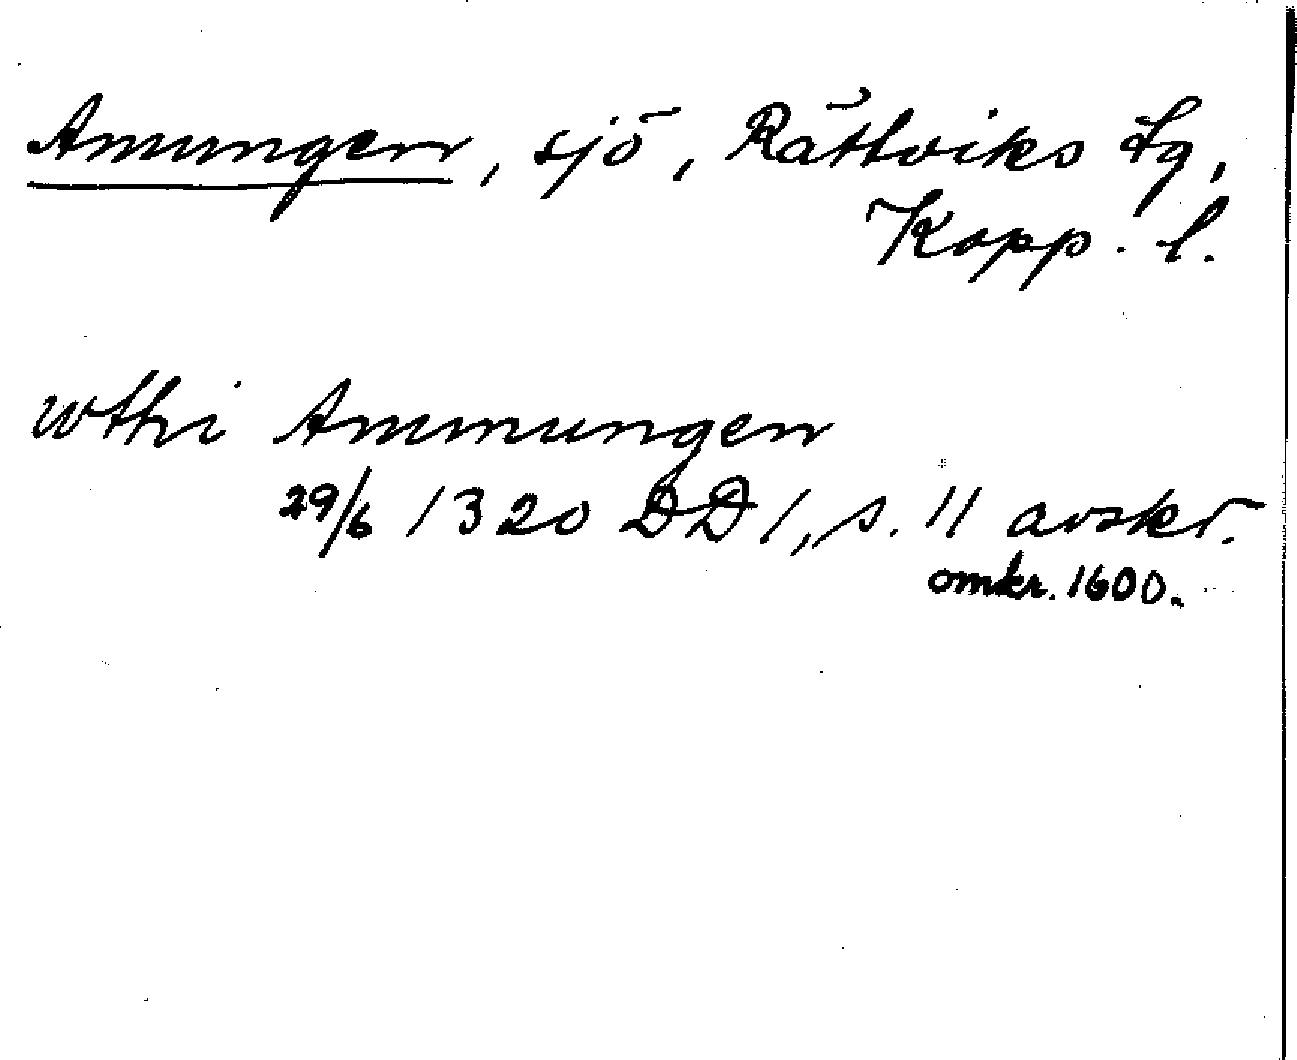 Amungen, sjö, Rättviks tg,
Kopp. l.
wthi Ammungen
29/6 1320 DD 1, s. 11 avskr.
omkr. 1600.